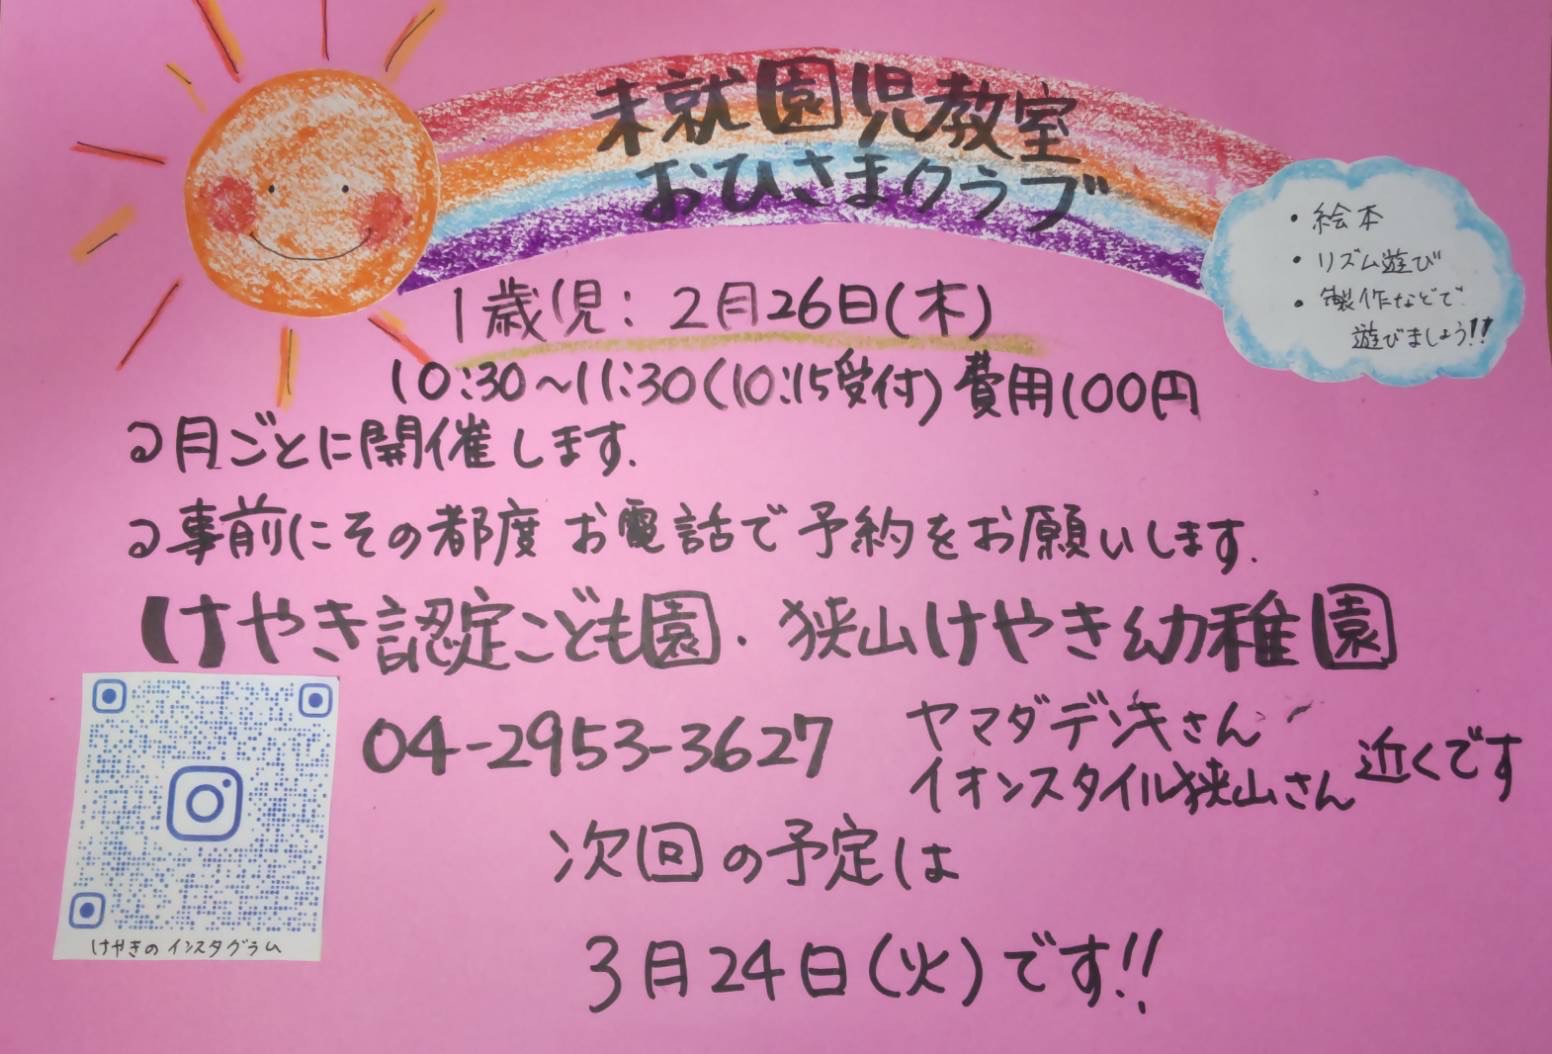 未就園児教室
おひさまクラブ
・絵本
・リズム遊び
・製作などで
遊びましょう!!
1歳児：2月26日(木)
10:30〜11:30(10:15受付)費用100円
月ごとに開催します.
事前にその都度 お電話で予約をお願いします.
けやき認定こども園・狭山けやき幼稚園
04-2953-3627
ヤマダデンキさん
イオンスタイル狭山さん
近くです
次回の予定は
3月24日(火)です!!
けやきのインスタグラム